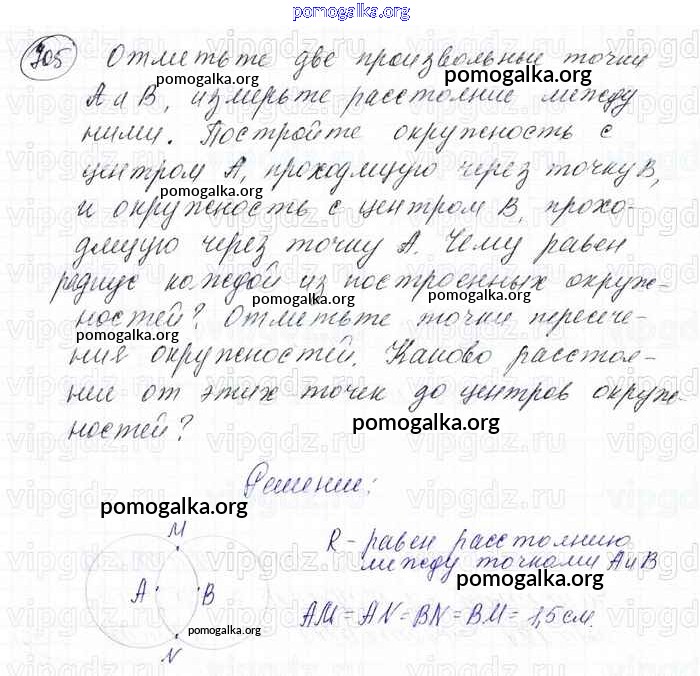 pomogalka.org
705 Отметьте две произвольные точки
pomogalka.org
А и В, измерьте расстояние между
ними. Постройте окружность с
pomogalka.org
центром А, проходящую через точку В,
pomogalka.org
и окружность с центром В, прохо-
дящую через точку А. Чему равен
радиус каждой из построенных окруж-
pomogalka.org pomogalka.org
ностей? Отметьте точки пересече-
pomogalka.org
ния окружностей. Каково расстоя-
ние от этих точек до центров окруж-
ностей?
pomogalka.org
Решение:
pomogalka.org
M
R - равен расстоянию
между точками А и В
pomogalka.org
A B
AM = AN = BN = BM = 1,5 см.
pomogalka.org
N
vipgdz.ru